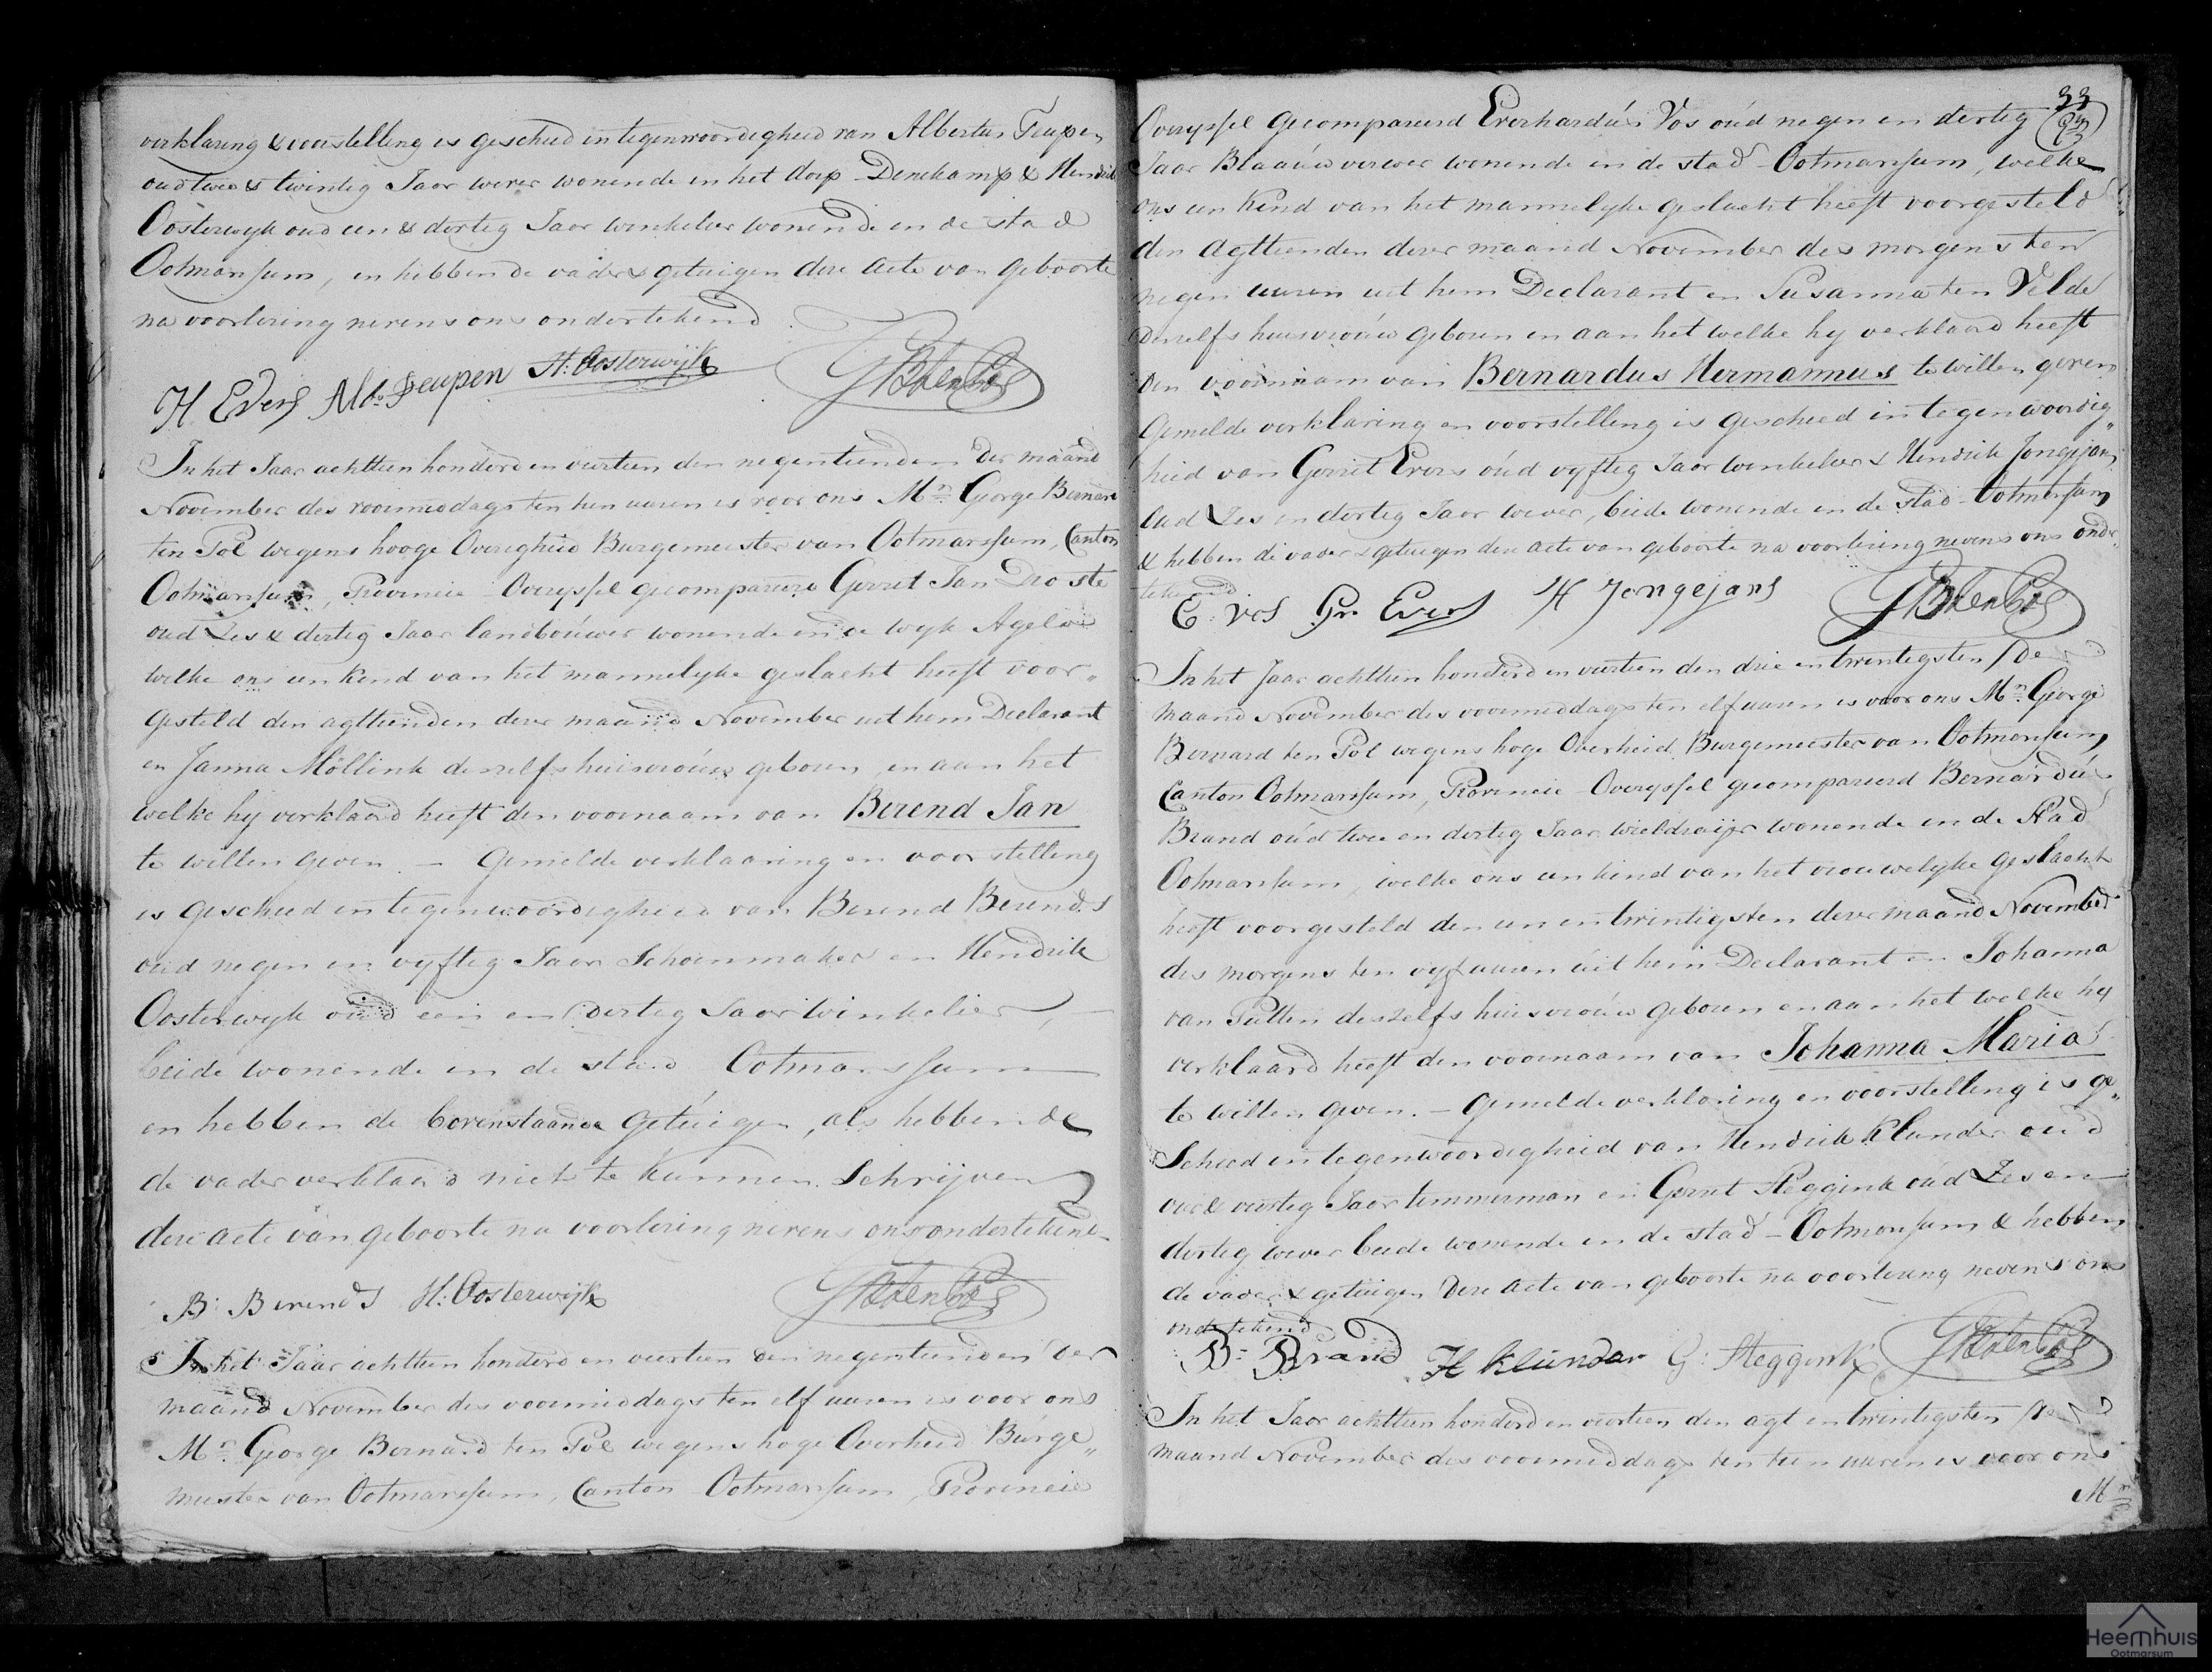 verklaring & voorstelling is geschied in tegenwoordigheid van Albertus Teupen
oud twee & twintig Jaar wever wonende in het dorp Denekamp & Hendrik
Oosterwyk oud een & dertig Jaar winkelier wonende in de stad
Ootmarssum, en hebben de vader & getuigen deze acte van geboorte
na voorlezing nevens ons ondertekend
H Evers Alb. Teupen H: Oosterwijk GBtenPol
In het Jaar achttien honderd en viertien den negentienden der maand
November des voormiddags ten tien uuren is voor ons Mr. George Bernard
ten Pol wegens hooge Overigheid Burgemeester van Ootmarssum, Canton
Ootmarssum, Provincie Overyssel gecompareerd Gerrit Jan Droste
oud Zes & dertig Jaar landbouwer wonende in de wyk Agelo
welke ons een kind van het mannelyke geslacht heeft voor„
gesteld den agttienden dezer maand November uit hem Declarant
en Janna Möllink deszelfs huisvrouw geboren, en aan het
welke hy verklaard heeft den voornaam van Berend Jan
te willen geven. – Gemelde verklaaring en voorstelling
is geschied in tegenwoordigheid van Berend Berends
oud negen en vyftig Jaar Schoenmaker en Hendrik
Oosterwyk oud een en dertig Jaar Winkelier,
beide wonende in de stad Ootmarssum
en hebben de bovenstaande getuigen, als hebbende
de vader verklaard niet te kunnen Schrijven
deze acte van geboorte na voorlezing nevens ons ondertekend
B: Berends H: Oosterwijk GBtenPol
In het Jaar achttien honderd en viertien den negentienden der
maand November des voormiddags ten elf uuren is voor ons
Mr. George Bernard ten Pol wegens hoge Overheid Burge„
meester van Ootmarssum, Canton Ootmarssum, Provincie
33
Overyssel gecompareerd Everhardus Vos oud negen en dertig
Jaar Blaauwverwer wonende in de stad Ootmarssum, welke
ons een kind van het mannelyke geslacht heeft voorgesteld
den agttienden dezer maand November des morgens ten
negen uuren uit hem Declarant en Susanna ten Velde
deszelfs huisvrouw geboren en aan het welke hy verklaard heeft
den voornaam van Bernardus Hermannus te willen geven
Gemelde verklaring en voorstelling is geschied in tegenwoordig„
heid van Gerrit Evers oud vyftig Jaar winkelier & Hendrik Jongejans
oud Zes en dertig Jaar wever, beide wonende in de stad Ootmarssum
& hebben de vader & getuigen deze acte van geboorte na voorlezing nevens ons onder„
tekend
E: Vos Gr. Evers H Jongejans GBtenPol
In het Jaar achttien honderd en viertien den drie en twintigsten de
maand November des voormiddags ten elf uuren is voor ons Mr. George
Bernard ten Pol wegens hoge Overheid Burgemeester van Ootmarssum,
Canton Ootmarssum, Provincie Overyssel gecompareerd Bernardus
Brand oud twee en dertig Jaar wieldraijer wonende in de Stad
Ootmarssum, welke ons een kind van het vrouwelyke geslacht
heeft voorgesteld den een en twintigsten dezer maand November
des morgens ten vyf uuren uit hem Declarant en Johanna
van Putten deszelfs huisvrouw geboren en aan het welke hy
verklaard heeft den voornaam van Johanna Maria
te willen geven. – Gemelde verklaring en voorstelling is ge„
Schied in tegenwoordigheid van Hendrik Klunder oud
een & veertig Jaar timmerman en Gerrit Steggink oud Zes en
dertig wever beide wonende in de stad Ootmarssum & hebben
de vader & getuigen deze acte van geboorte na voorlezing nevens ons
ondertekend
B: Brand H Klunder G: Steggink GBtenPol
In het Jaar achttien honderd en viertien den agt en twintigsten de
maand November des voormiddags ten tien uuren is voor ons
Mr.
Heemhuis
Ootmarsum